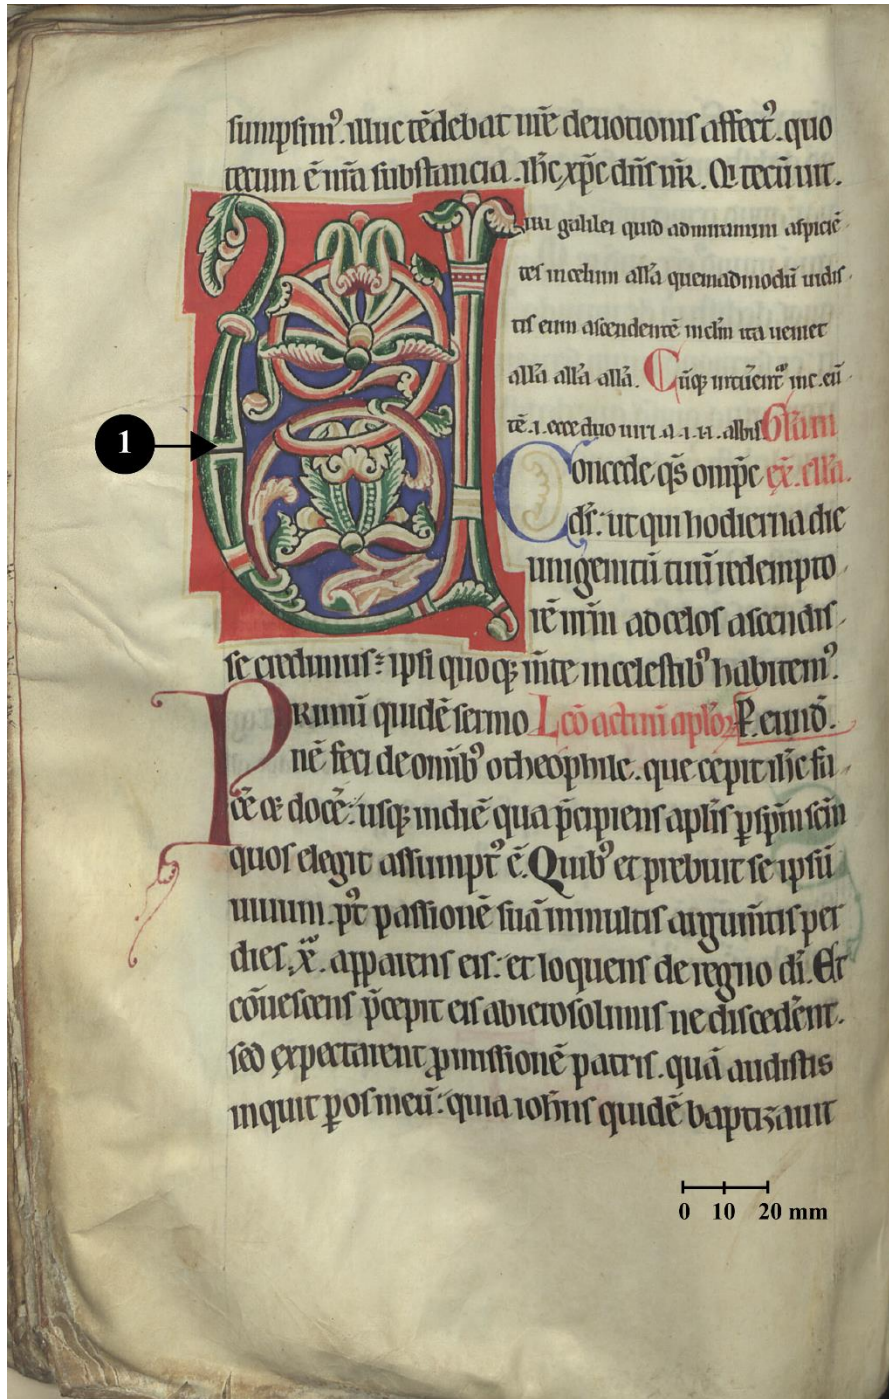 sumpsim᷒. illuc tēdebat nr̄e deuotionis affect᷒. quo
tecum ē nr̄a substancia. ih̄c xp̄c dn̄s nr̄. Q̇ tecū uit.
Viri galilei quid admiramini aspiciē
tes in celum all'a quemadmodū uidis
tis eum ascendentē in celm̄ ita ueniet
all'a all'a all'a. Cūq; intuerent᷒ inc. eū
tē. i. ecce duo uiri. a. i. u. albis Gradm̄
Concede qs̄ omp̄c ex. ell'a.
ds̄: ut qui hodierna die
unigenitū tuū redempto
rē nr̄m ad celos ascendis
se credimus: ipsi quoq; m̄te in celestib᷒ habitem᷒.
Primū quidē sermo Lcō actuū aplo⁊ P. eiusd.
nē feci de omib᷒ o theophile. que cepit ih̄c fa
cē & docē: usq; in diē qua p̄cipiens aplis p sp̄m sc̄m
quos elegit assumpt᷒ ē. Quib᷒ et prebuit se ipsū
uiuum. p᷒t passionē suā in multis argum̄tis per
dies. xl. apparens eis: et loquens de regno di̅. Et
cōuescens p̄cepit eis ab ierosolimis ne discedēnt.
sed expectarent ꝓmissionē patris. quā audistis
inquit ꝑ os meū: quia ioh̄s quidē baptizauit
1
0 10 20 mm